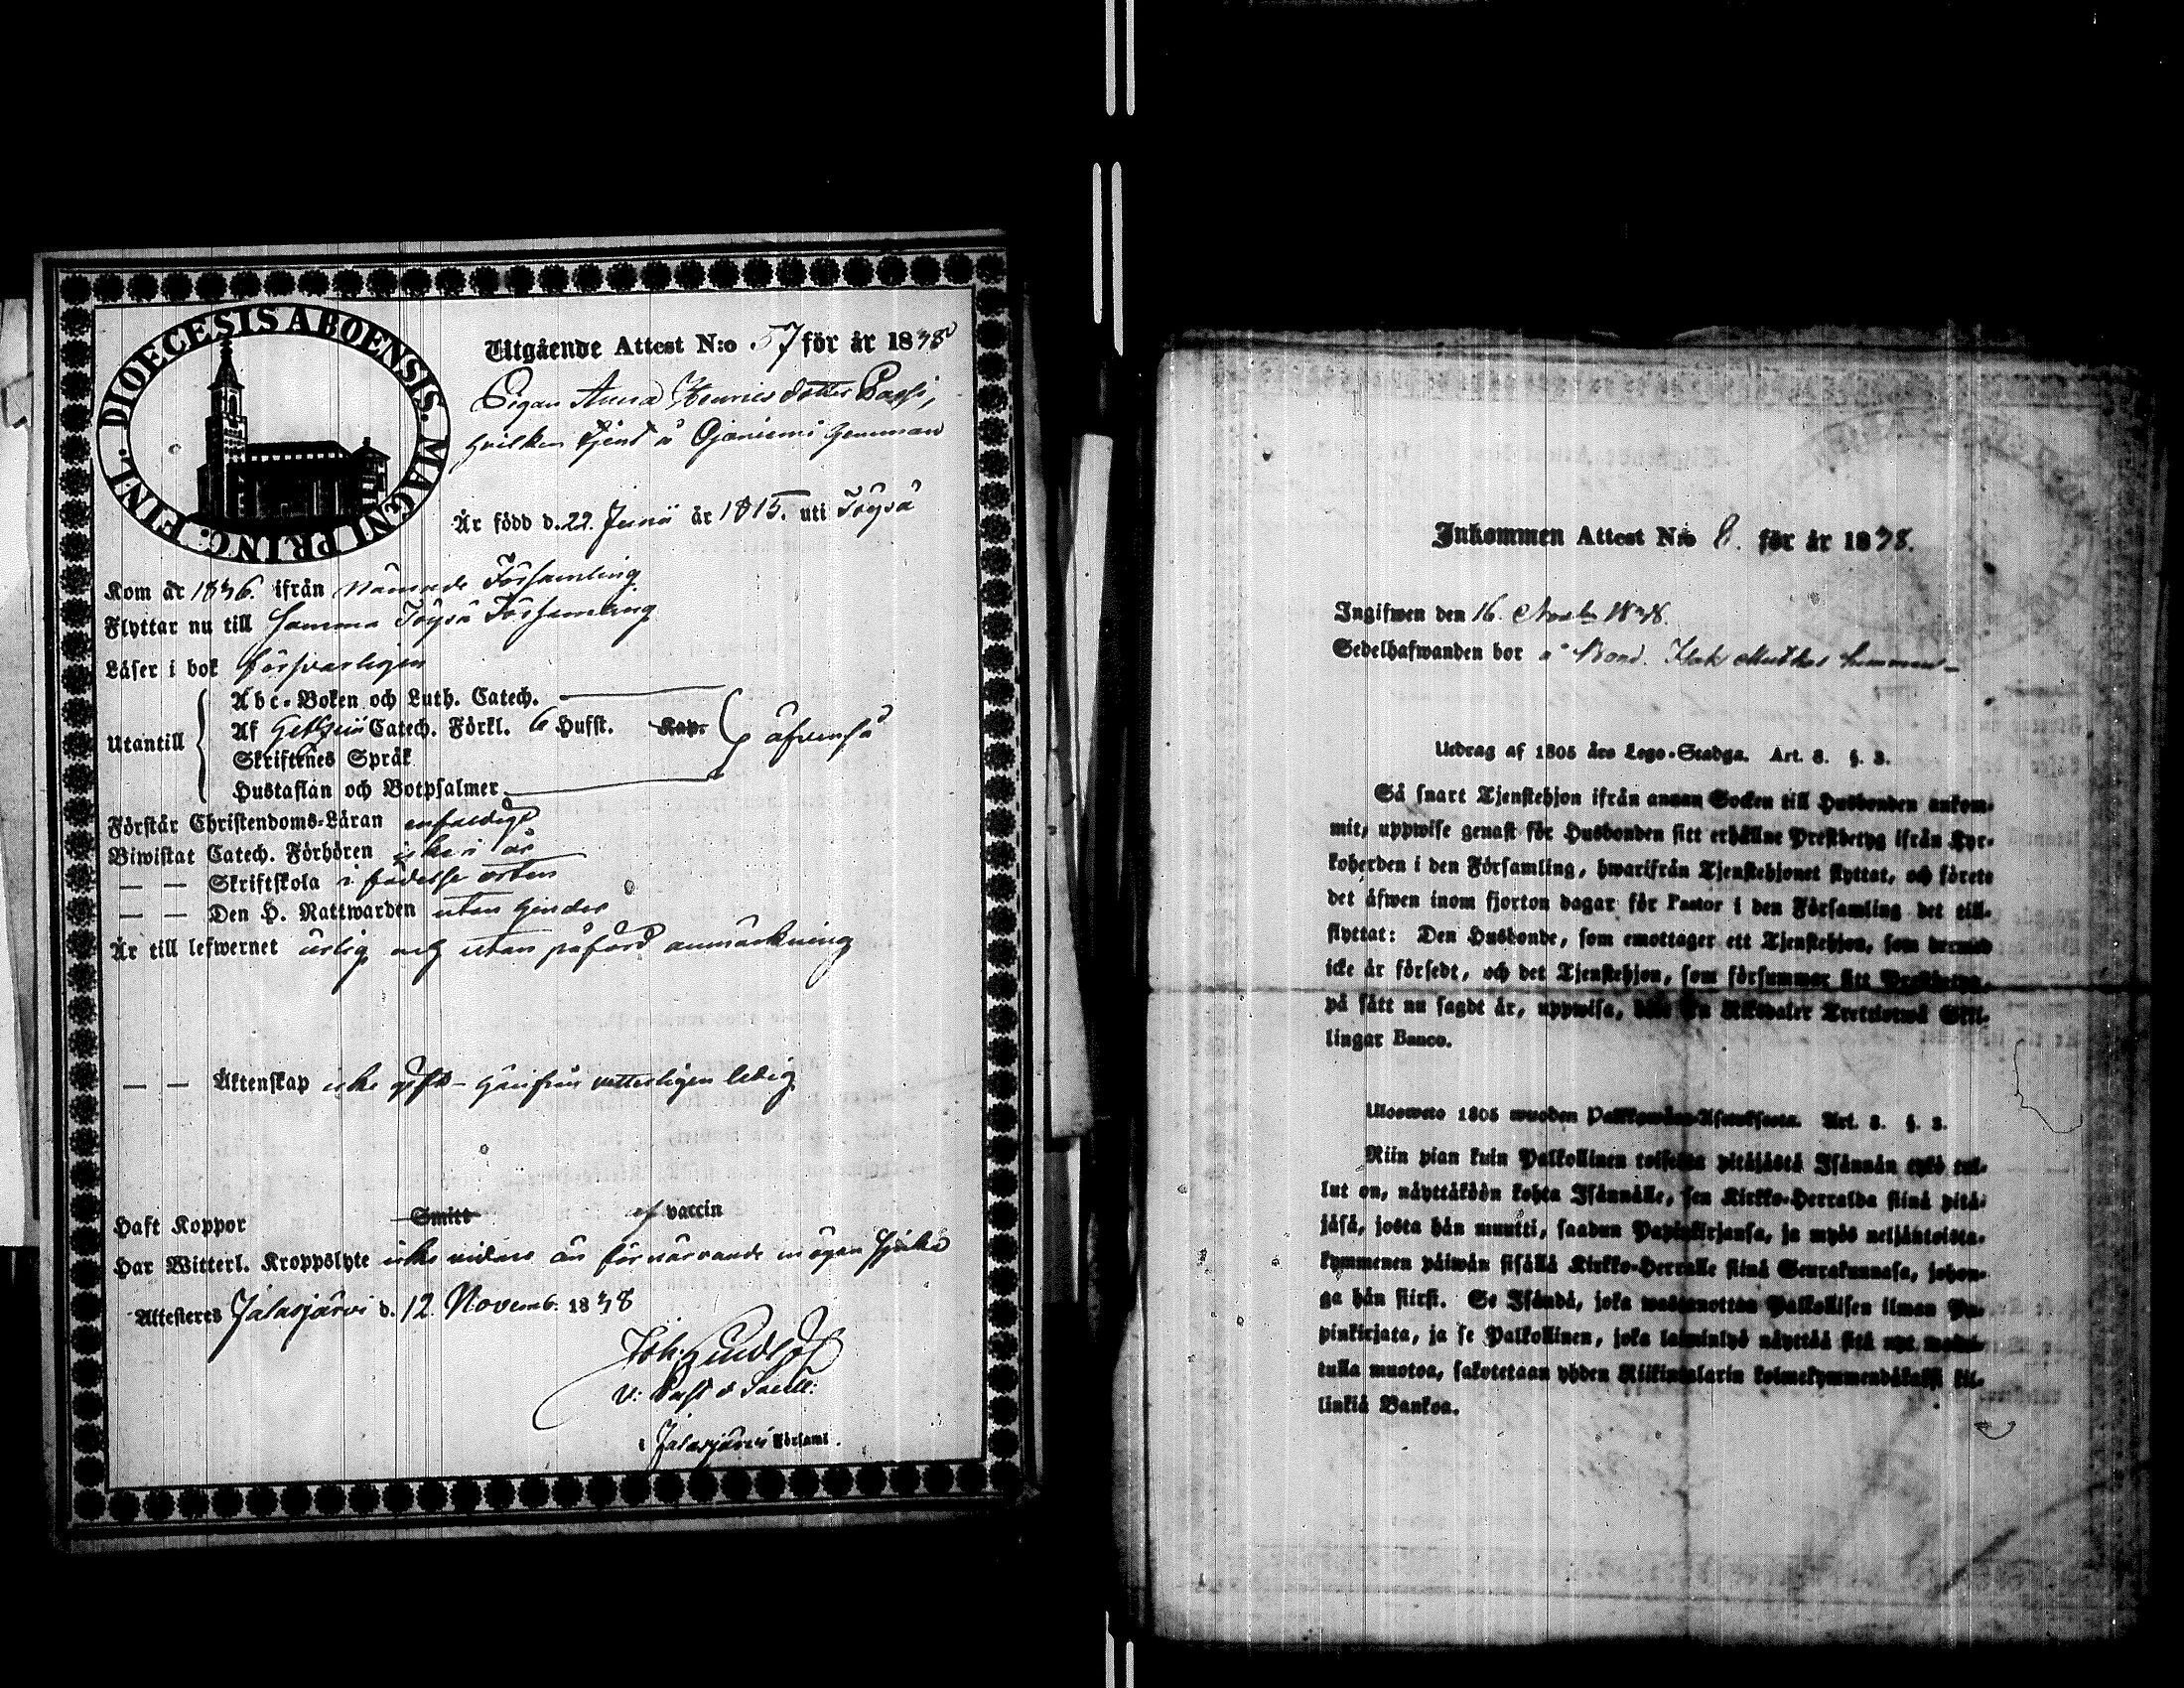 DIOECESIS ABOENSIS. MAGNI PRINC: FINL.
Utgående Attest N:o 57 för år 1838
Pigan Anna Henrics dotter
hvilken tjent å Ojaniemi hemman
Är född d. 22. Junii år 1815. uti Töysä
Kom år 1836. ifrån nämnde Församling
Flyttar nu till Samma Töysä Församling
Läser i bok försvarligen
Utantill
Abc-Boken och Luth. Catech.
Af Getzelii Catech. Förkl. 6 Hufst. Kap.
Skriftenes Språk
äfvenså
Hustaflan och Botpsalmer
Förstår Christendoms-Läran enfaldigt
Biwistat Catech. Förhören icke i år
— — Skriftskola i födelse orten
— — Den H. Nattwarden utan hinder
Är till lefwernet ärlig och utan påförd anmärkning
— — Äktenskap icke gift – härifrån vetterligen ledig
Haft Koppor Smitt af vaccin
Har Witterl. Kroppslyte icke vidare än förnärvarande ögon sjuka
Attesteres Jalasjärvi d. 12 Novemb. 1838
Joh:
V: Past:
i Jalasjärvi Församl.
Inkommen Attest N:o 8. för år 1838.
Ingifwen den 16. Novbr 1838.
Sedelhafwanden bor å Bond. Isak hemman
Utdrag af 1805 års Lego-Stadga. Art. 8. §. 3.
Så snart Tjenstehjon ifrån annan Socken till Husbonden ankom-
mit, uppwise genast för Husbonden sitt erhållne Prestbetyg ifrån Kyr-
koherden i den Församling, hwarifrån Tjenstehjonet flyttat, och förete
det äfwen inom fjorton dagar för Pastor i den Församling det till-
flyttat: Den Husbonde, som emottager ett Tjenstehjon, som dermed
icke är försedt, och det Tjenstehjon, som försummar sitt Prestbetyg,
på sätt nu sagdt är, uppwisa, böte En Riksdaler Trettiotwå Skil-
lingar Banco.
Ulosweto 1805 wuoden Palkkowäen-Asetuksesta. Art. 8. §. 3.
Niin pian kuin Palkollinen toisesta pitäjästä Isännän tykö tul-
lut on, näyttäköön kohta Isännälle, sen Kirkko-Herralda siinä pitä-
jäsä, josta hän muutti, saadun Papinkirjansa, ja myös neljäntoista-
kymmenen päiwän sisällä Kirkko-Herralle siinä Seurakunnasa, johon-
ga hän siirsi. Se Isändä, joka wastanottaa Palkollisen ilman Pa-
pinkirjata, ja se Palkollinen, joka laiminlyö näyttää sitä nyt
tulla muotoa, sakotetaan yhden Riikintalarin kolmekymmendäkaksi kil-
linkiä Bankoa.